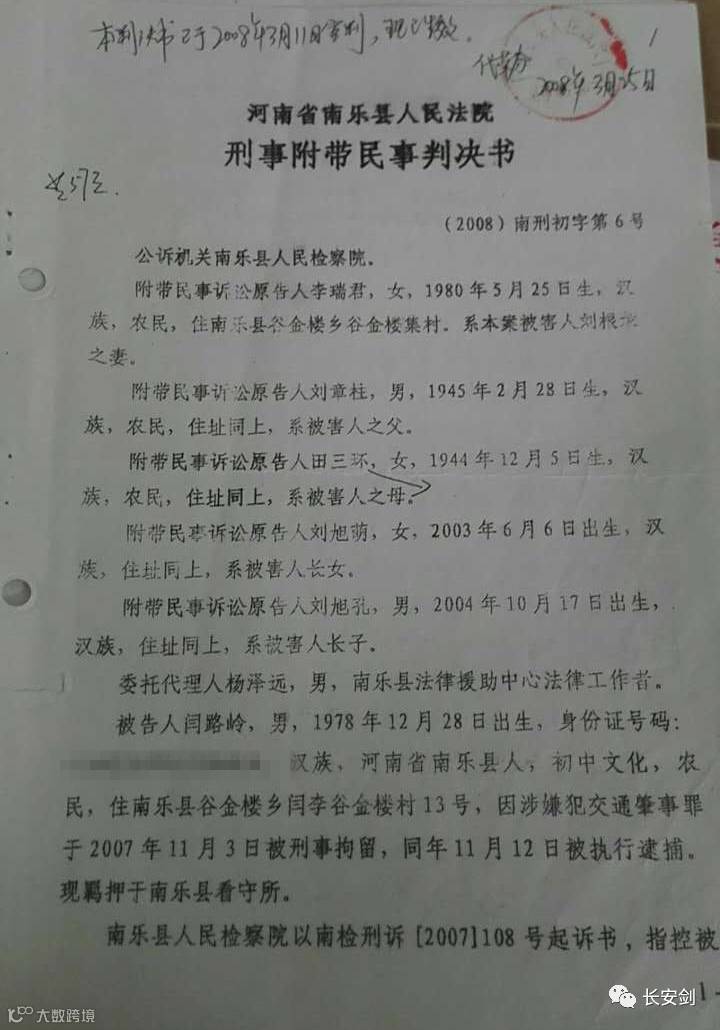 本判决书已于2008年3月11日宣判，现已生效。
2008年3月25日
1
河南省南乐县人民法院
刑事附带民事判决书
（2008）南刑初字第6号
公诉机关南乐县人民检察院。
附带民事诉讼原告人李瑞君，女，1980年5月25日生，汉
族，农民，住南乐县谷金楼乡谷金楼集村。系本案被害人刘根
之妻。
附带民事诉讼原告人刘章柱，男，1945年2月28日生，汉
族，农民，住址同上，系被害人之父。
附带民事诉讼原告人田三环，女，1944年12月5日生，汉
族，农民，住址同上，系被害人之母。
附带民事诉讼原告人刘旭萌，女，2003年6月6日出生，汉
族，住址同上，系被害人长女。
附带民事诉讼原告人刘旭孔，男，2004年10月17日出生，
汉族，住址同上，系被害人长子。
委托代理人杨泽远，男，南乐县法律援助中心法律工作者。
被告人闫路岭，男，1978年12月28日出生，身份证号码：
汉族，河南省南乐县人，初中文化，农
民，住南乐县谷金楼乡闫李谷金楼村13号，因涉嫌犯交通肇事罪
于2007年11月3日被刑事拘留，同年11月12日被执行逮捕。
现羁押于南乐县看守所。
南乐县人民检察院以南检刑诉[2007]108号起诉书，指控被
1
长安剑
大数跨境